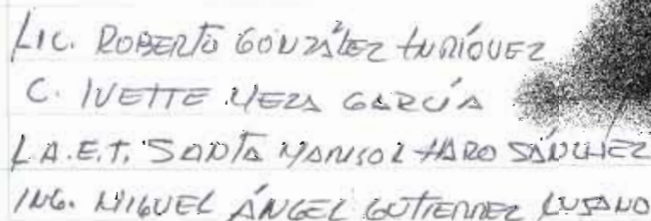 LIC. ROBERTO GONZÁLEZ ENRÍQUEZ
C. IVETTE MEZA GARCÍA
L.A.E.T. SANTA MARISOL HARO SÁNCHEZ
ING. MIGUEL ÁNGEL GUTIERREZ LUGANO